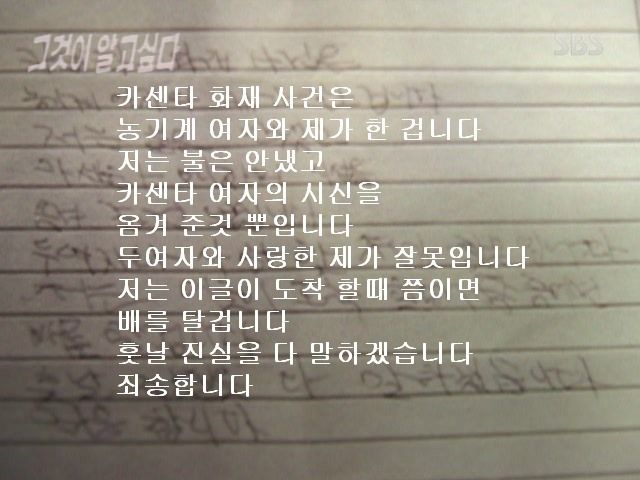 그것이 알고싶다
SBS
카센타 화재 사건은
농기계 여자와 제가 한 겁니다
저는 불은 안냈고
카센타 여자의 시신을
옴겨 준것 뿐입니다
두여자와 사랑한 제가 잘못입니다
저는 이글이 도착 할때 쯤이면
배를 탈겁니다
훗날 진실을 다 말하겠습니다
죄송합니다